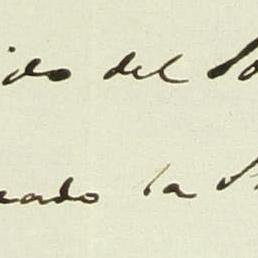 ido del So
eado la S